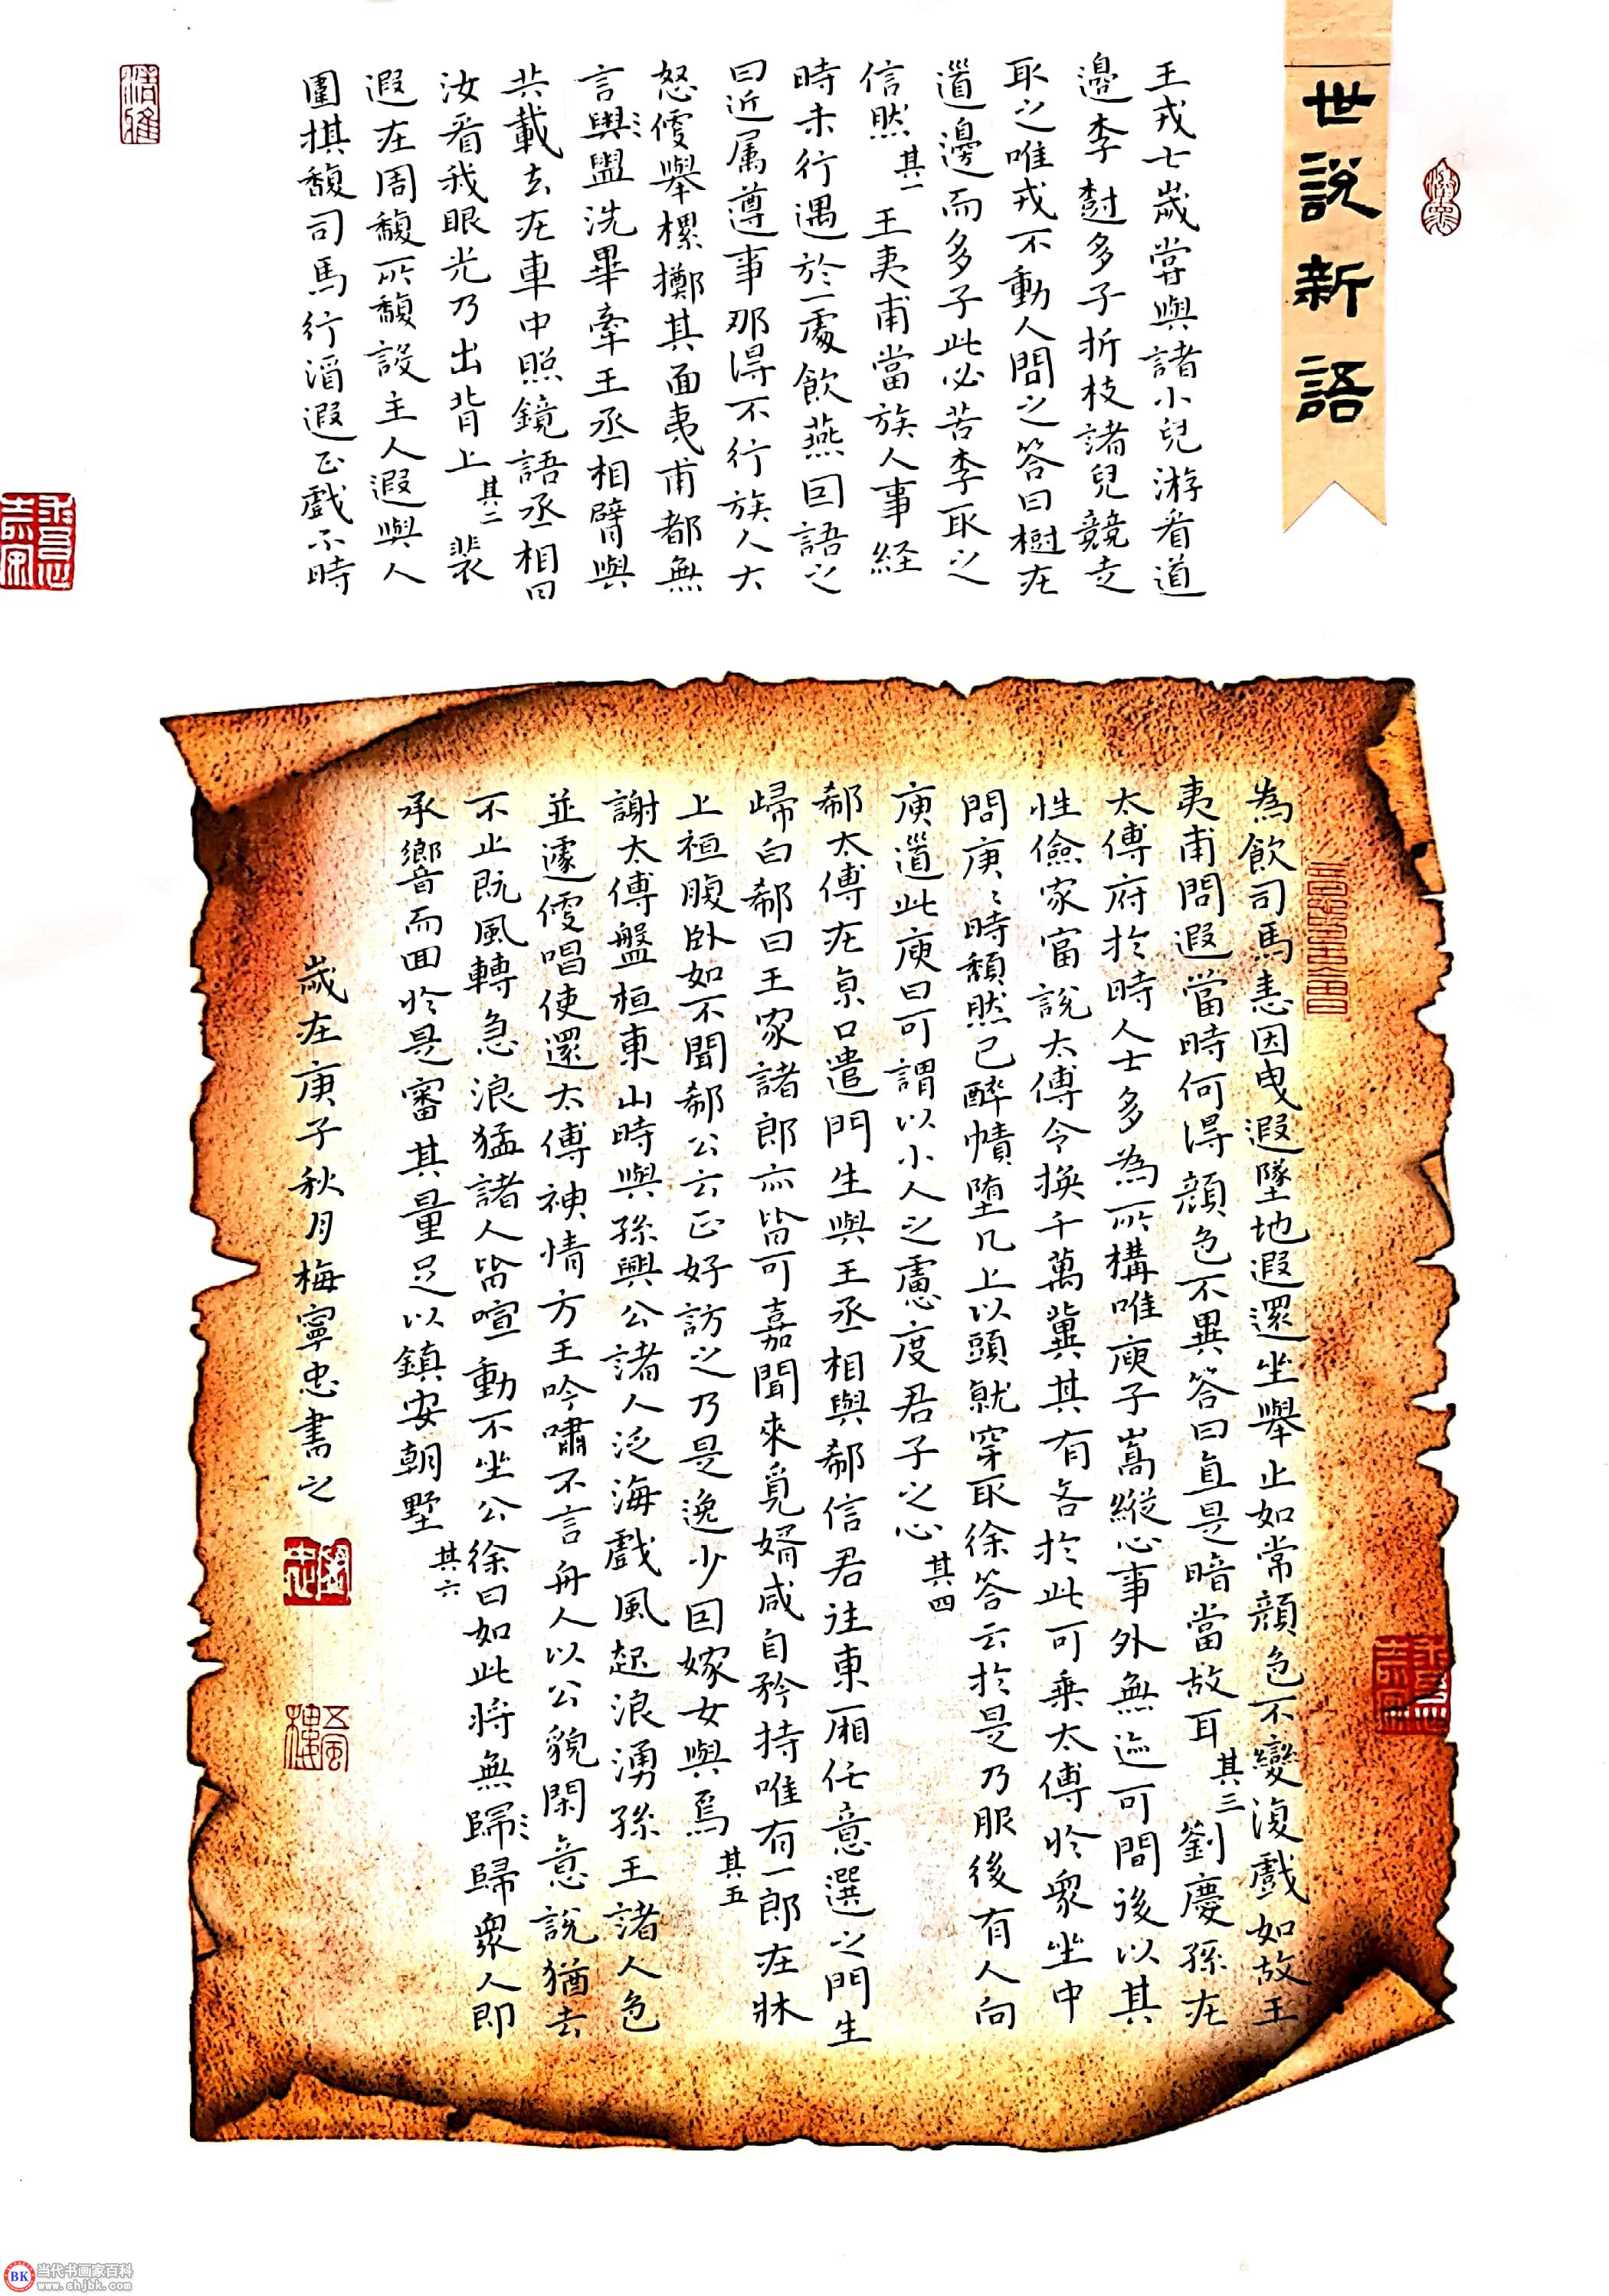 世說新語
王戎七歲嘗與諸小兒游看道
邊李樹多子折枝諸兒競走
取之唯戎不動人問之答曰樹在
道邊而多子此必苦李取之
信然 其一 王夷甫當族人事経
時未行遇於一處飲燕因語之
曰近属尊事那得不行族人大
怒復舉樏擲其面夷甫都無
言與〻盥洗畢牽王丞相臂與
共載去在車中照鏡語丞相曰
汝看我眼光乃出背上 其二 裴
遐在周馥所馥設主人遐與人
圍棋馥司馬行酒遐正戲不時
為飲司馬恚因曳遐墜地遐還坐舉止如常顏色不變復戲如故王
夷甫問遐當時何得顏色不異答曰直是暗當故耳 其三 劉慶孫在
太傅府於時人士多為所構唯庾子嵩縱心事外無迹可間後以其
性儉家富說太傅令換千萬冀其有吝於此可乗太傅於衆坐中
問庾〻時頹然已醉幘墮几上以頭就穿取徐答云於是乃服後有人向
庾道此庾曰可謂以小人之慮度君子之心 其四
郗太傅在京口遣門生與王丞相與郗信君往東廂任意選之門生
歸白郗曰王家諸郎亦皆可嘉聞來覓婿咸自矜持唯有一郎在牀
上袒腹卧如不聞郗公云正好訪之乃是逸少因嫁女與焉 其五
謝太傅盤桓東山時與孫興公諸人泛海戲風起浪湧孫王諸人色
並遽復唱使還太傅神情方王吟嘯不言舟人以公貌閑意說猶去
不止既風轉急浪猛諸人皆喧動不坐公徐曰如此將無歸〻歸衆人即
承響音而回於是審其量足以鎮安朝墅 其六
歲在庚子秋月梅寧忠書之
BK 当代书画家百科
www.shjbk.com